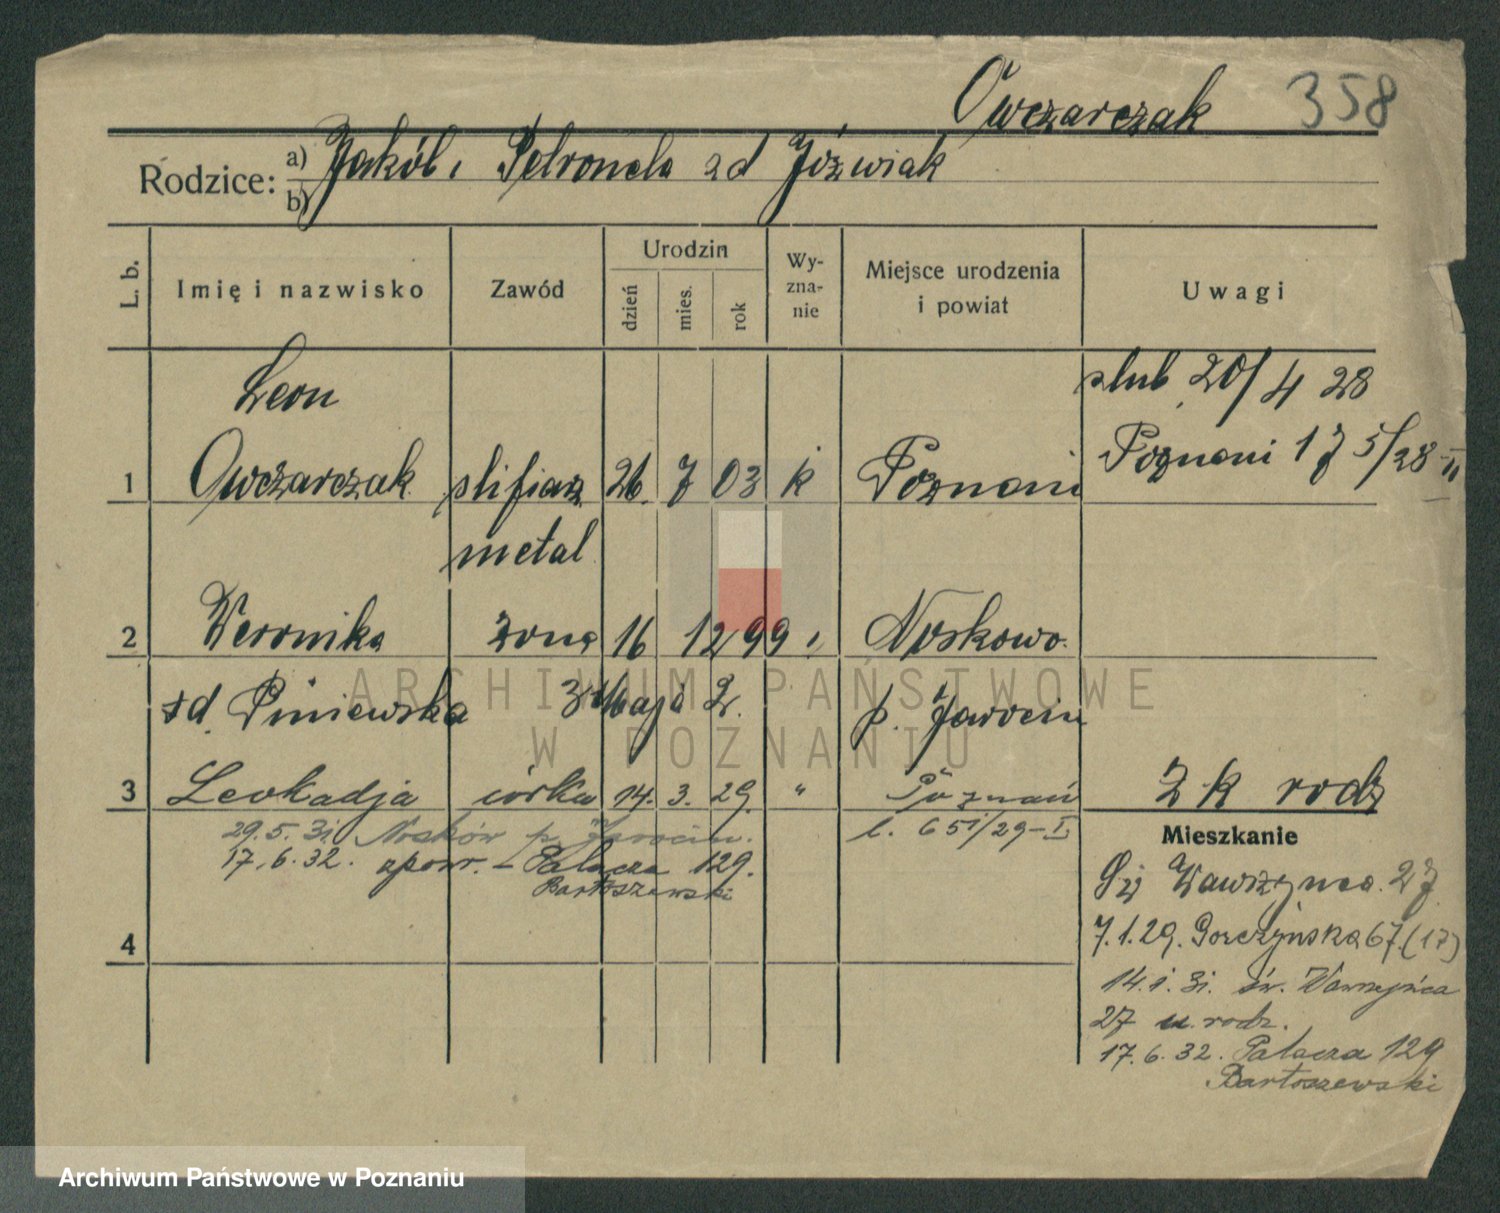 Owczarczak 358
Rodzice: a) Jakób i Petronela zd Jóźwiak
b)
L. b. Imię i nazwisko Zawód Urodzin dzień mies. rok Wy-zna-nie Miejsce urodzenia i powiat Uwagi
Leon ślub 20/4 28
Poznani 175/28 II
1 Owczarczak slifiarz 26. 7 03 k Poznani
metal
2 Weronika żona 16 12 99 " Noskowo.
zd. Piniewska p. Jarocin
3 Leokadja córka 14. 3. 29. " Poznań
z k rodz
29. 5. 31 Nosków p. Jarocin. l. 651/29-I
17. 6. 32. zpowr. - Palacza 129.
Bartoszewski
4
Mieszkanie
Św Wawrzynca. 27
7. 1. 29. Gorczynska 67. (17)
14. 1. 31. św. Wawrzyńca
27 u. rodz.
17. 6. 32. Palacza 129
Bartoszewski
ARCHIWUM PAŃSTWOWE
W POZNANIU
Archiwum Państwowe w Poznaniu